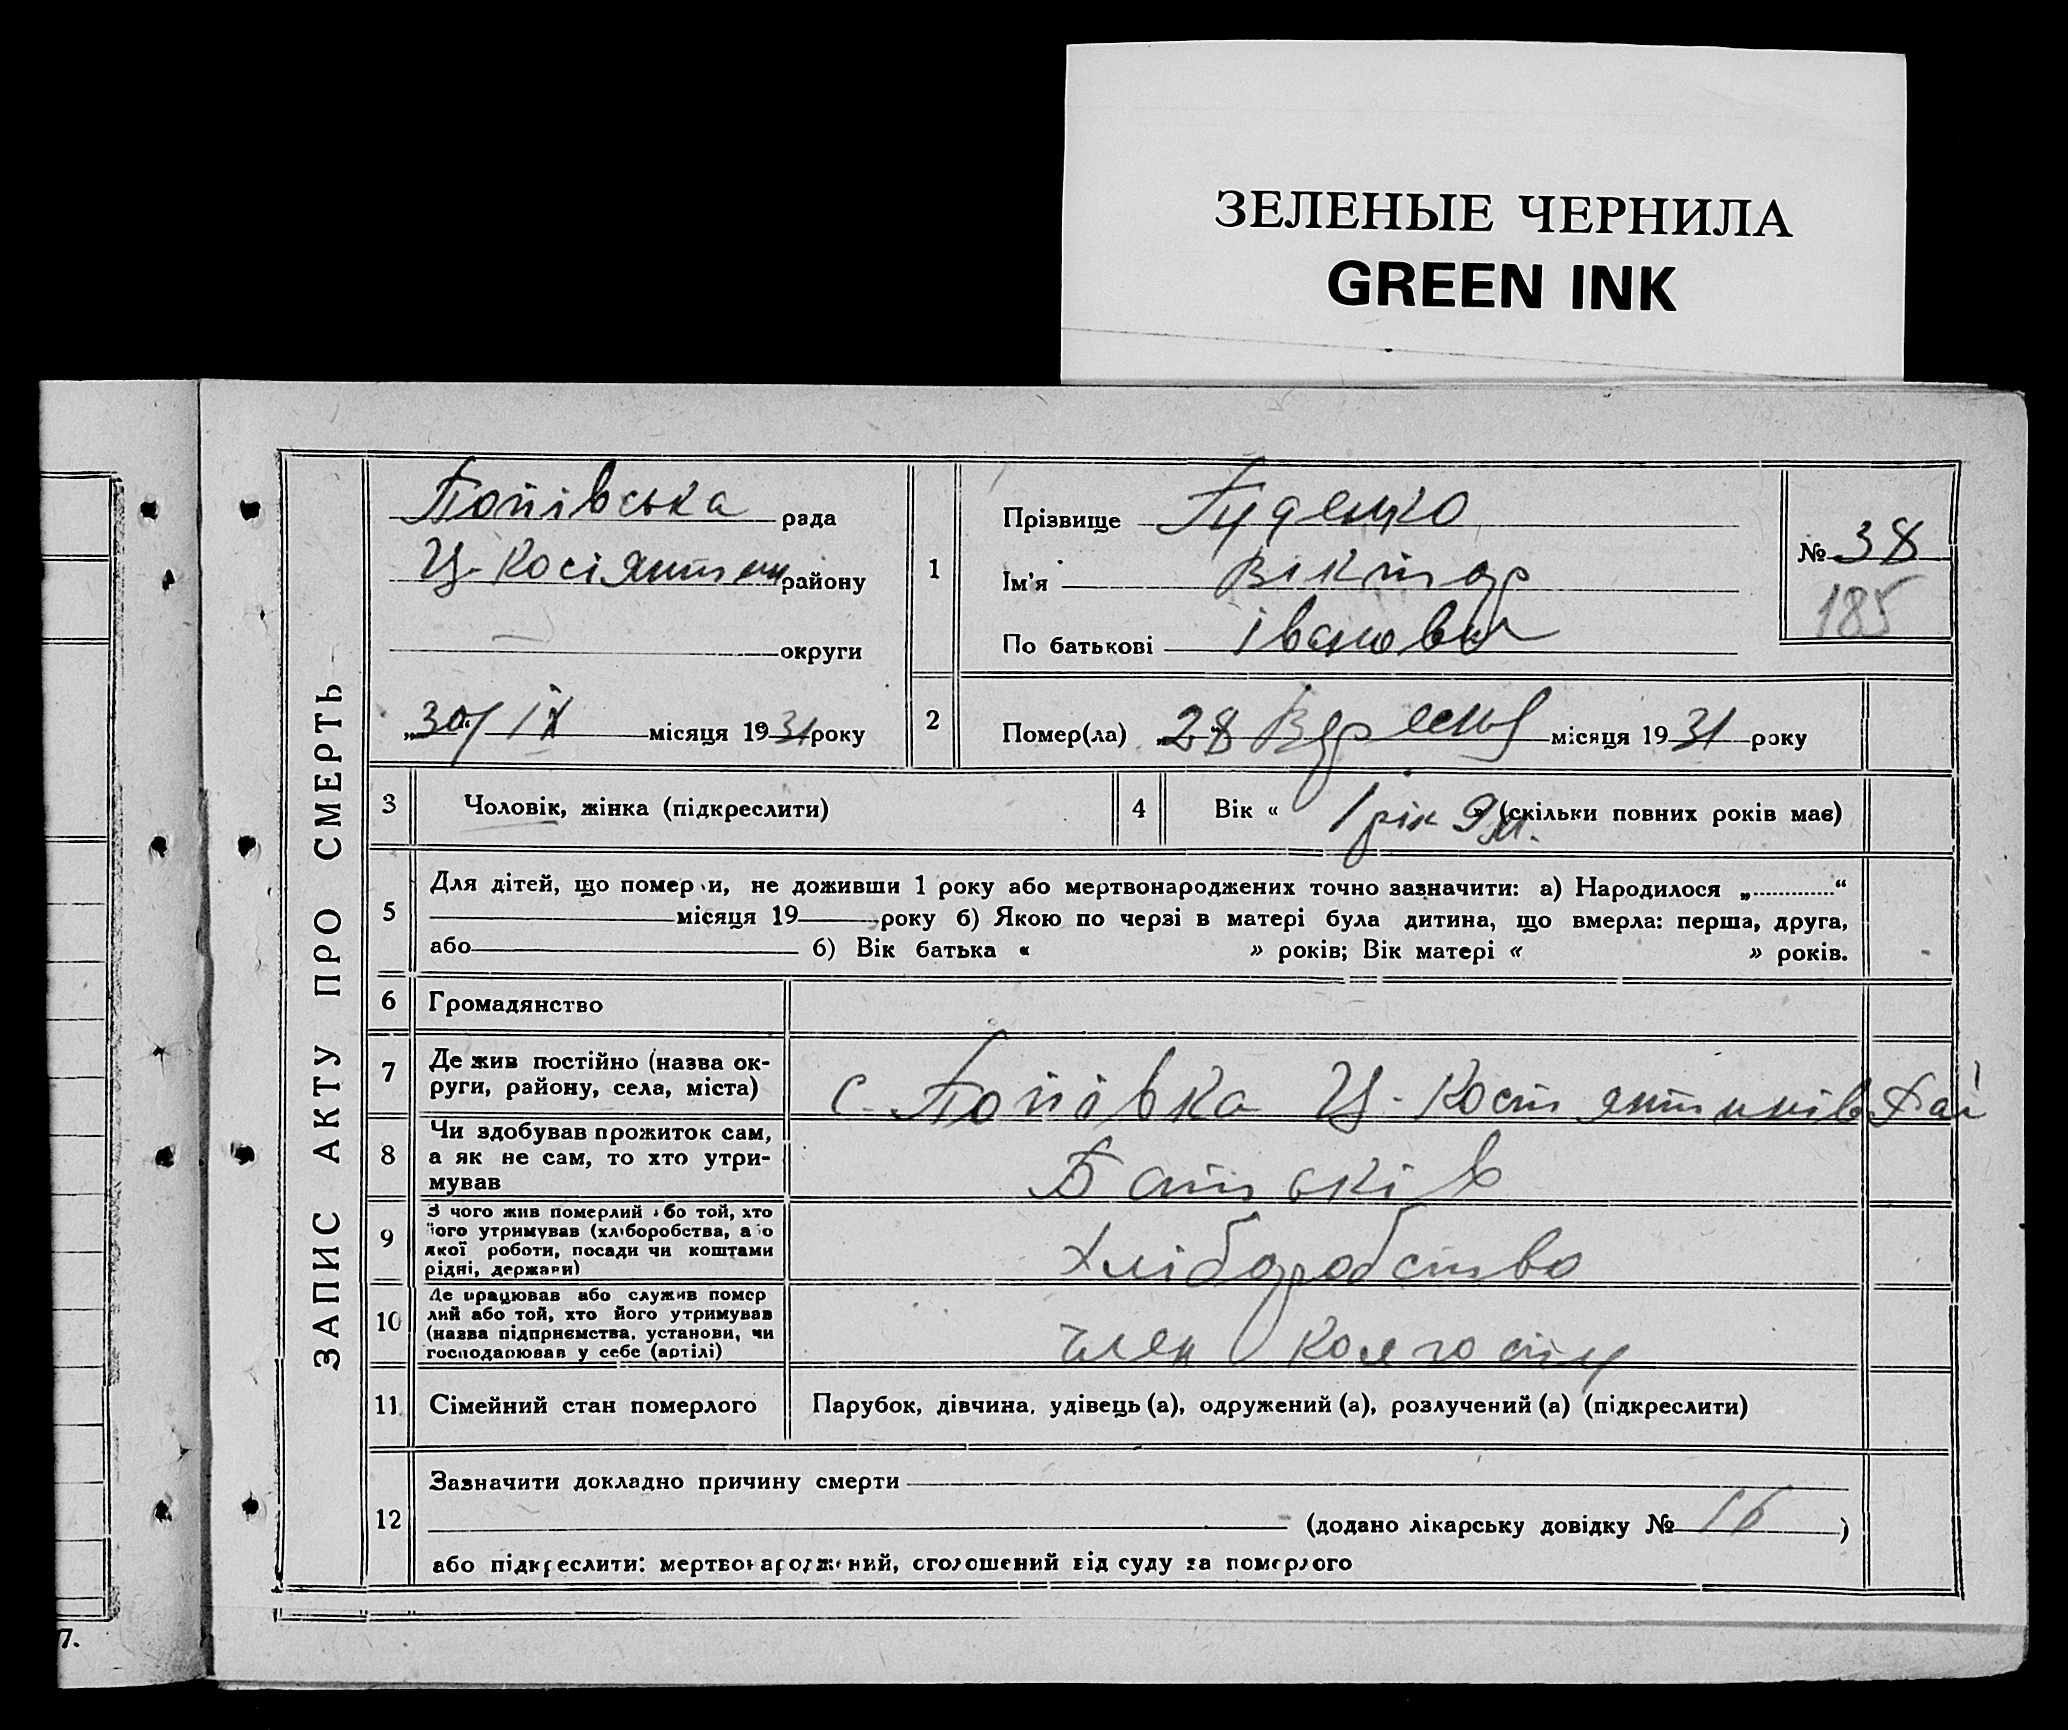 ЗЕЛЕНЫЕ ЧЕРНИЛА
GREEN INK
ЗАПИС АКТУ ПРО СМЕРТЬ
Попівська рада
району
округи
„30“ ІХ місяця 1931 року
1
Прізвище Гуденко
Ім'я Віктор
По батькові
№ 38
185
2
Помер(ла) „28“ Вересня місяця 1931 року
3
Чоловік, жінка (підкреслити)
4
Вік « 1 рік 9 м. » (скільки повних років має)
5
Для дітей, що померли, не доживши 1 року або мертвонароджених точно зазначити: а) Народилося „ “
місяця 19 року б) Якою по черзі в матері була дитина, що вмерла: перша, друга,
або б) Вік батька « » років; Вік матері « » років.
6
Громадянство
7
Де жив постійно (назва ок-
руги, району, села, міста)
с. Попівка Ц-
8
Чи здобував прожиток сам,
а як не сам, то хто утри-
мував
Батьків
9
З чого жив померлий або той, хто
його утримував (хліборобства, або
якої роботи, посади чи коштами
рідні, держави)
Хліборобство
10
Де працював або служив помер
лий або той, хто його утримував
(назва підприємства, установи, чи
господарював у себе (артілі)
член колгоспу
11
Сімейний стан померлого
Парубок, дівчина, удівець (а), одружений (а), розлучений (а) (підкреслити)
12
Зазначити докладно причину смерти
(додано лікарську довідку № )
або підкреслити: мертвонароджений, оголошений від суду за померлого
7.